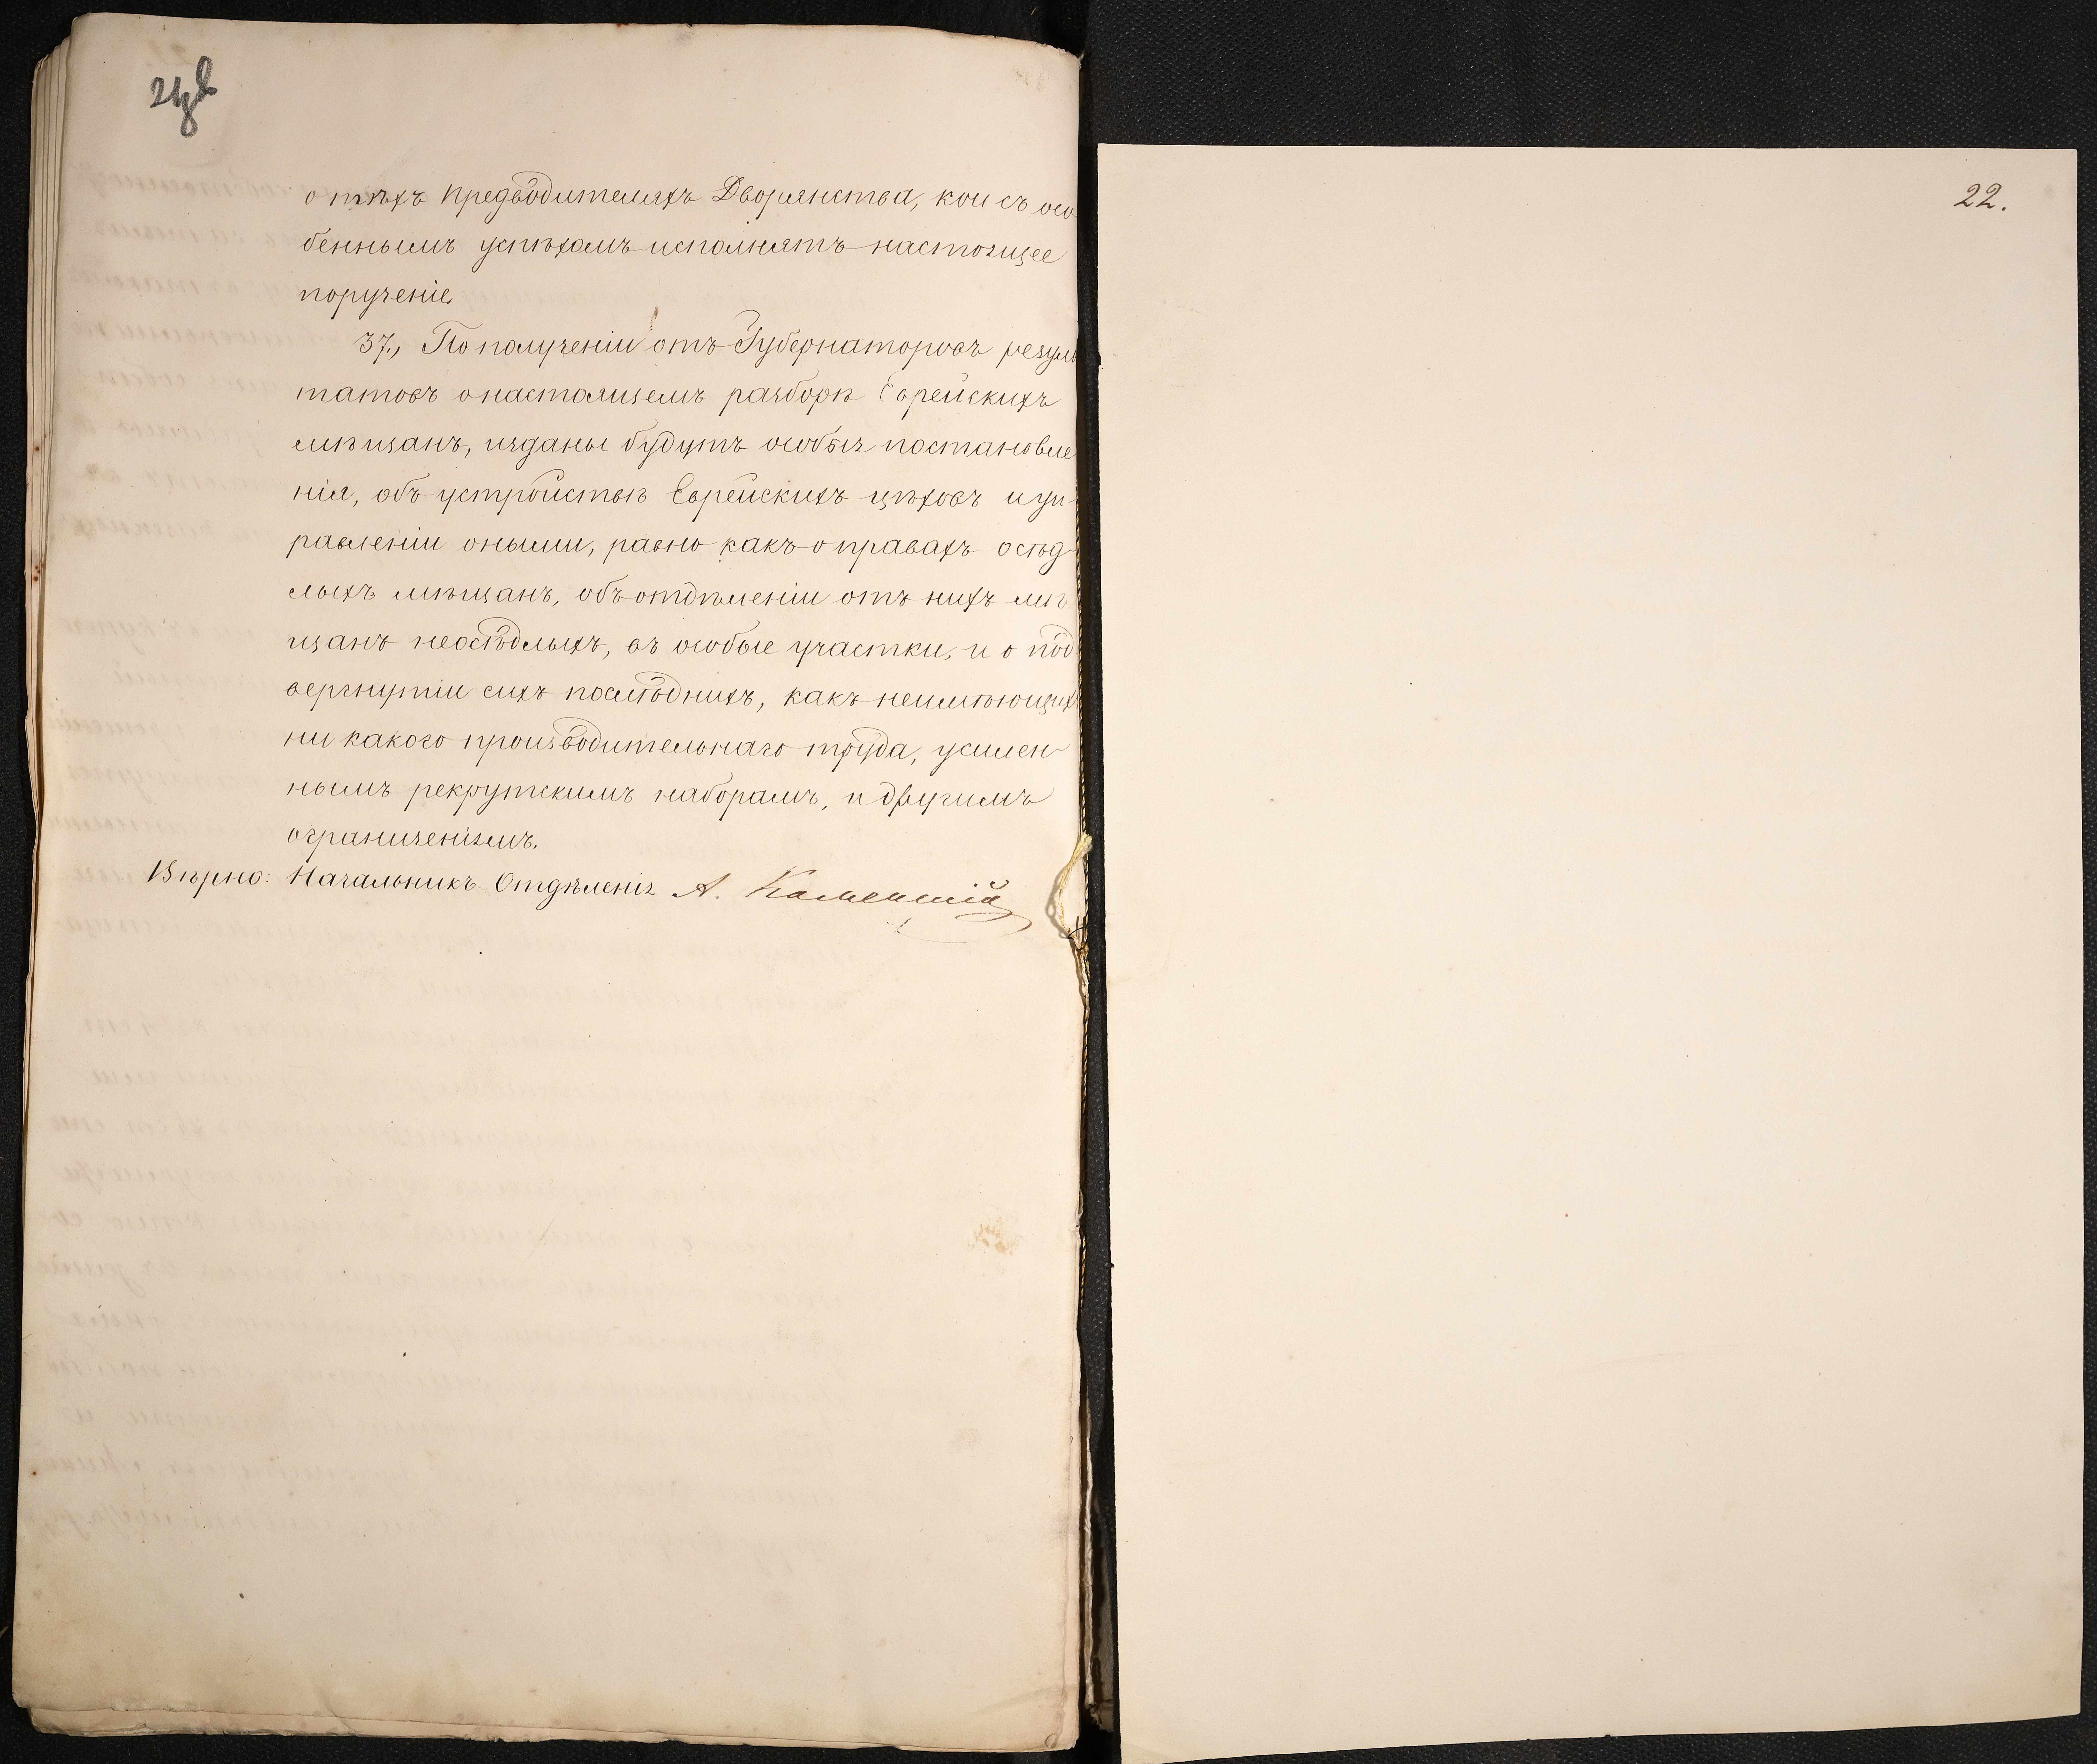 о тѣхъ Предводителяхъ Дворянства, кои съ осо
беннымъ успѣхомъ исполнятъ настоящее
порученіе.
37., По полученіи отъ Губернаторовъ резуль
татовъ о настоящемъ разборѣ Еврейскихъ
мѣщанъ, изданы будутъ особыя постановле
нія, объ устройствѣ Еврейскихъ цѣховъ и уп
равленіи оными, равно какъ о правахъ осѣд
лыхъ мѣщанъ, объ отдѣленіи отъ нихъ мѣ
щанъ неосѣдлыхъ, въ особые участки, и о под
вергнутіи сихъ послѣднихъ, какъ неимѣющихъ
ни какого производительнаго труда, усилен
нымъ рекрутскимъ наборамъ, и другимъ
ограниченіямъ.
Вѣрно: Начальникъ Отдѣленія А. Каменскій
22.